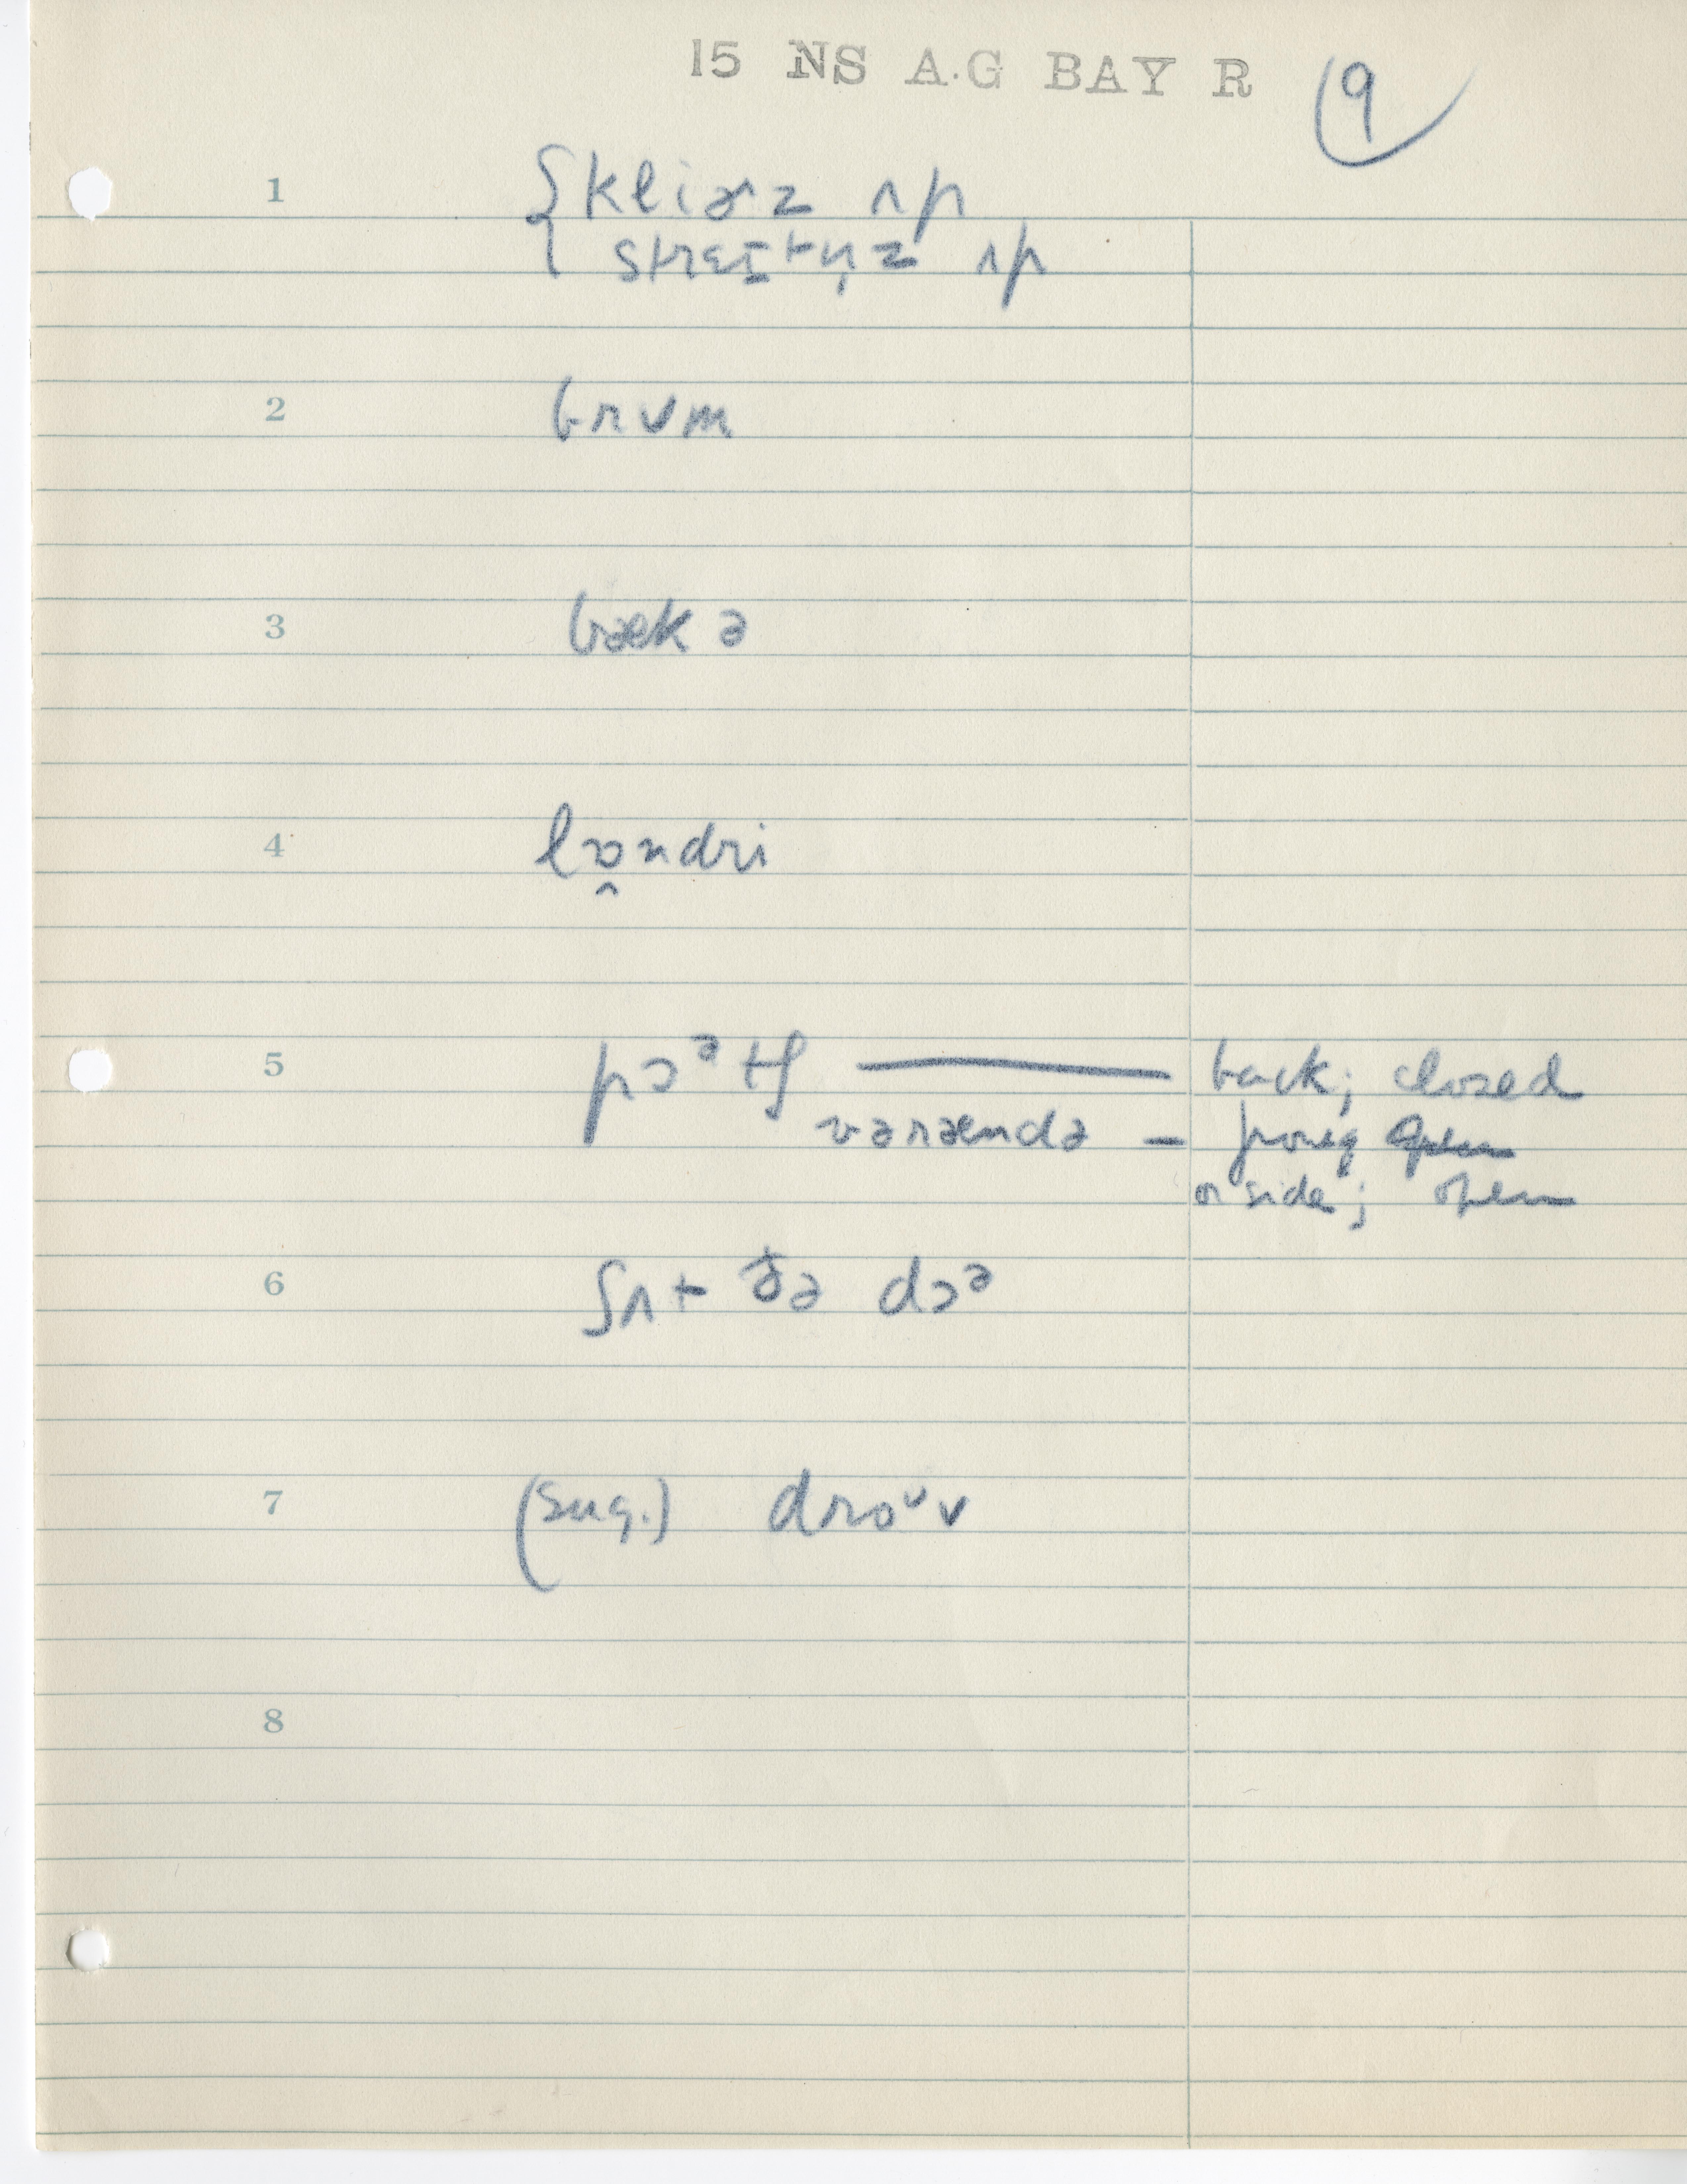 15 NS A.G BAY R 9
1 { kliɚz ʌp
streɪtn̩z ʌp
2 brʊm
3 bæk ə
4 lɔ̭ndri
5 pɔᵊtʃ — back; closed
vərændə —
or side; open
6 ʃʌt ðə dɔᵊ
7 (sug.) droᶷv
8